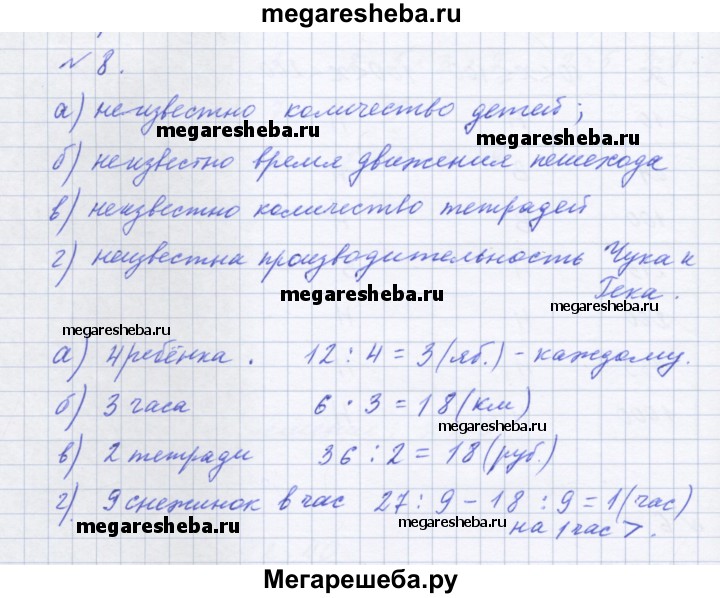 megaresheba.ru
№ 8.
а) неизвестно количество детей;
megaresheba.ru
megaresheba.ru
б) неизвестно время движения пешехода
в) неизвестно количество тетрадей
г) неизвестна производительность Чука и
megaresheba.ru
Гека.
megaresheba.ru
megaresheba.ru
а) 4 ребёнка. 12 : 4 = 3 (яб.) - каждому.
б) 3 часа 6 · 3 = 18 (км)
megaresheba.ru
в) 2 тетради 36 : 2 = 18 (руб.)
г) 9 снежинок в час 27 : 9 - 18 : 9 = 1 (час)
megaresheba.ru
megaresheba.ru
на 1 час >.
Мегарешеба.ру